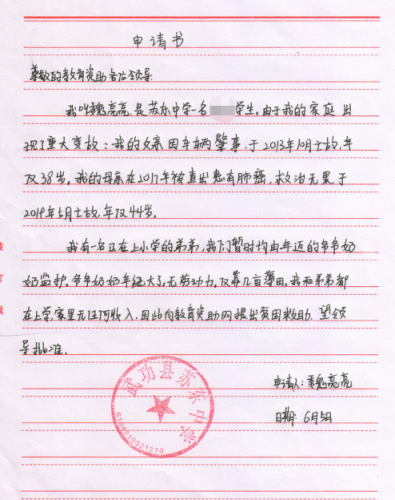 申请书
尊敬的教育资助各位领导
我叫魏亮亮 是苏东中学一名 学生,由于我的家庭 出
现了重大变故:我的父亲因车辆肇事,于2013年10月亡故,年
仅38岁。我的母亲在2017年被查出患有肺癌,救治无果于
2019年5月亡故,年仅44岁。
我有一名正在上小学的弟弟,我们暂时均由年迈的爷爷奶
奶监护,爷爷奶奶年纪大了,无劳动力,仅靠几亩薄田,我和弟弟都
在上学,家里无任何收入,因此向教育资助网提出贫困救助。望领
导批准.
武功县苏东中学
申请人:魏亮亮
日期: 6月5日